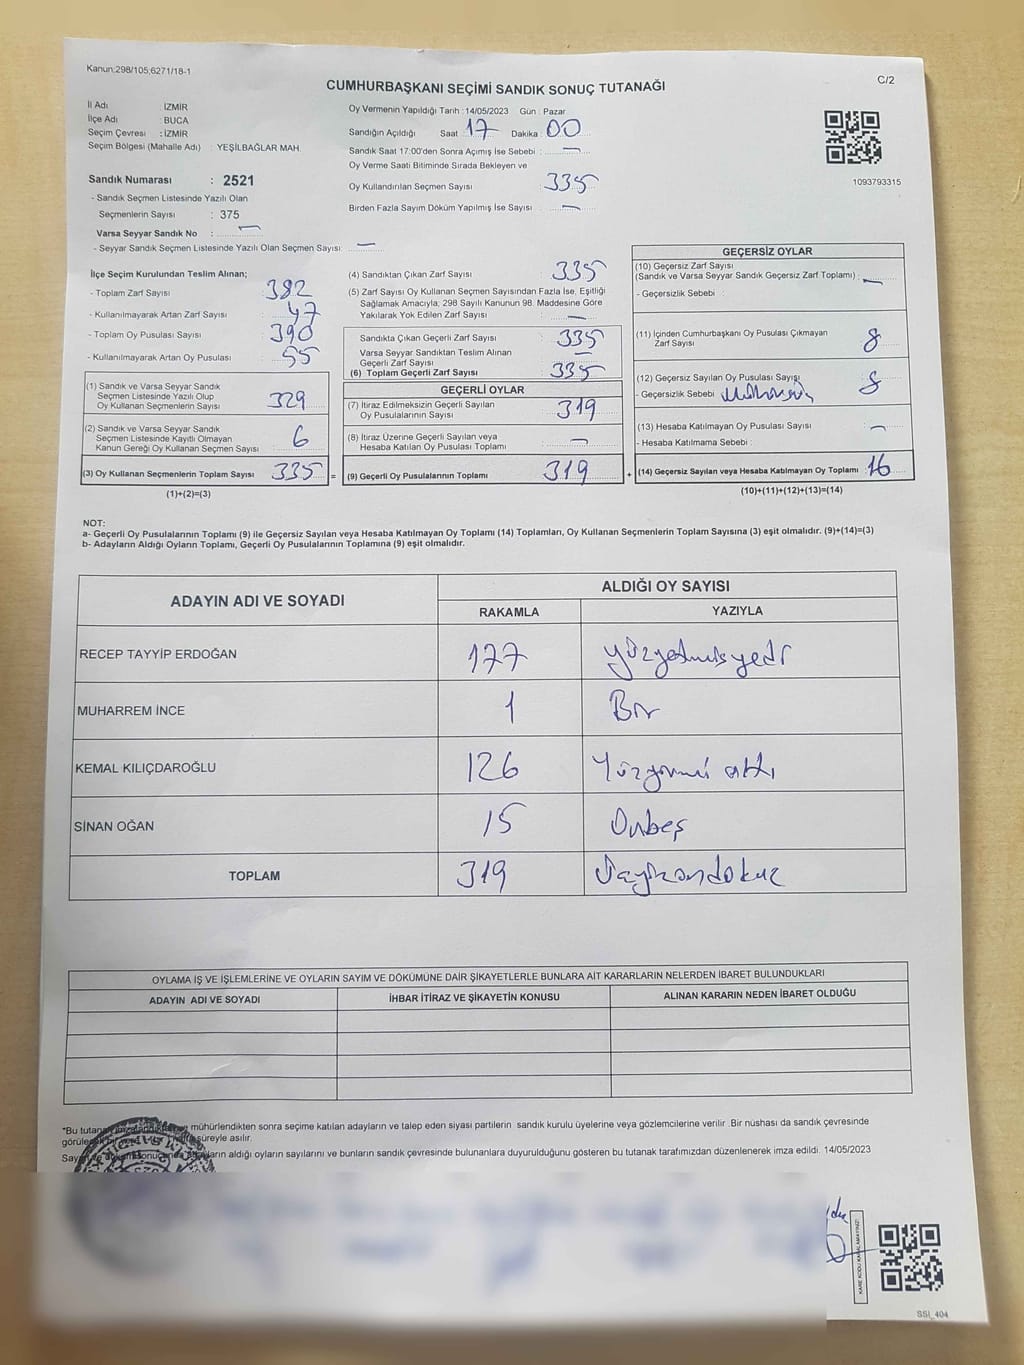 Kanun:298/105;6271/18-1
C/2
CUMHURBAŞKANI SEÇİMİ SANDIK SONUÇ TUTANAĞI
İl Adı : İZMİR
İlçe Adı : BUCA
Seçim Çevresi : İZMİR
Seçim Bölgesi (Mahalle Adı) : YEŞİLBAĞLAR MAH.
Sandık Numarası : 2521
- Sandık Seçmen Listesinde Yazılı Olan
Seçmenlerin Sayısı : 375
Varsa Seyyar Sandık No : —
- Seyyar Sandık Seçmen Listesinde Yazılı Olan Seçmen Sayısı: —
Oy Vermenin Yapıldığı Tarih : 14/05/2023 Gün : Pazar
Sandığın Açıldığı Saat 17 Dakika : 00
Sandık Saat 17:00'den Sonra Açımış İse Sebebi : —
Oy Verme Saati Bitiminde Sırada Bekleyen ve
Oy Kullandırılan Seçmen Sayısı 335
Birden Fazla Sayım Döküm Yapılmış İse Sayısı : —
1093793315
İlçe Seçim Kurulundan Teslim Alınan;
- Toplam Zarf Sayısı : 382
- Kullanılmayarak Artan Zarf Sayısı : 47
- Toplam Oy Pusulası Sayısı : 390
- Kullanılmayarak Artan Oy Pusulası : 55
(1) Sandık ve Varsa Seyyar Sandık
Seçmen Listesinde Yazılı Olup
Oy Kullanan Seçmenlerin Sayısı : 329
(2) Sandık ve Varsa Seyyar Sandık
Seçmen Listesinde Kayıtlı Olmayan
Kanun Gereği Oy Kullanan Seçmen Sayısı : 6
(3) Oy Kullanan Seçmenlerin Toplam Sayısı : 335 =
(1)+(2)=(3)
(4) Sandıktan Çıkan Zarf Sayısı : 335
(5) Zarf Sayısı Oy Kullanan Seçmen Sayısından Fazla İse, Eşitliği
Sağlamak Amacıyla; 298 Sayılı Kanunun 98. Maddesine Göre
Yakılarak Yok Edilen Zarf Sayısı : —
Sandıkta Çıkan Geçerli Zarf Sayısı : 335
Varsa Seyyar Sandıktan Teslim Alınan
Geçerli Zarf Sayısı : —
(6) Toplam Geçerli Zarf Sayısı : 335
GEÇERLİ OYLAR
(7) İtiraz Edilmeksizin Geçerli Sayılan
Oy Pusulalarının Sayısı : 319
(8) İtiraz Üzerine Geçerli Sayılan veya
Hesaba Katılan Oy Pusulası Toplamı : —
(9) Geçerli Oy Pusulalarının Toplamı : 319 +
GEÇERSİZ OYLAR
(10) Geçersiz Zarf Sayısı
(Sandık ve Varsa Seyyar Sandık Geçersiz Zarf Toplamı) : —
- Geçersizlik Sebebi :
(11) İçinden Cumhurbaşkanı Oy Pusulası Çıkmayan
Zarf Sayısı : 8
(12) Geçersiz Sayılan Oy Pusulası Sayısı : 8
- Geçersizlik Sebebi
(13) Hesaba Katılmayan Oy Pusulası Sayısı : —
- Hesaba Katılmama Sebebi :
(14) Geçersiz Sayılan veya Hesaba Katılmayan Oy Toplamı : 16
(10)+(11)+(12)+(13)=(14)
NOT:
a- Geçerli Oy Pusulalarının Toplamı (9) ile Geçersiz Sayılan veya Hesaba Katılmayan Oy Toplamı (14) Toplamları, Oy Kullanan Seçmenlerin Toplam Sayısına (3) eşit olmalıdır. (9)+(14)=(3)
b- Adayların Aldığı Oyların Toplamı, Geçerli Oy Pusulalarının Toplamına (9) eşit olmalıdır.
ADAYIN ADI VE SOYADI
ALDIĞI OY SAYISI
RAKAMLA YAZIYLA
RECEP TAYYİP ERDOĞAN 177 yüzyetmişyedi
MUHARREM İNCE 1 Bir
KEMAL KILIÇDAROĞLU 126 Yüzyirmi altı
SİNAN OĞAN 15 Onbeş
TOPLAM 319 Üçyüzondokuz
OYLAMA İŞ VE İŞLEMLERİNE VE OYLARIN SAYIM VE DÖKÜMÜNE DAİR ŞİKAYETLERLE BUNLARA AİT KARARLARIN NELERDEN İBARET BULUNDUKLARI
ADAYIN ADI VE SOYADI İHBAR İTİRAZ VE ŞİKAYETİN KONUSU ALINAN KARARIN NEDEN İBARET OLDUĞU
*Bu tutanak mühürlendikten sonra seçime katılan adayların ve talep eden siyasi partilerin sandık kurulu üyelerine veya gözlemcilerine verilir. Bir nüshası da sandık çevresinde
süreyle asılır.
aldığı oyların sayılarını ve bunların sandık çevresinde bulunanlara duyurulduğunu gösteren bu tutanak tarafımızdan düzenlenerek imza edildi. 14/05/2023
KARE KODU KARALAMAYINIZ!
SSI_404